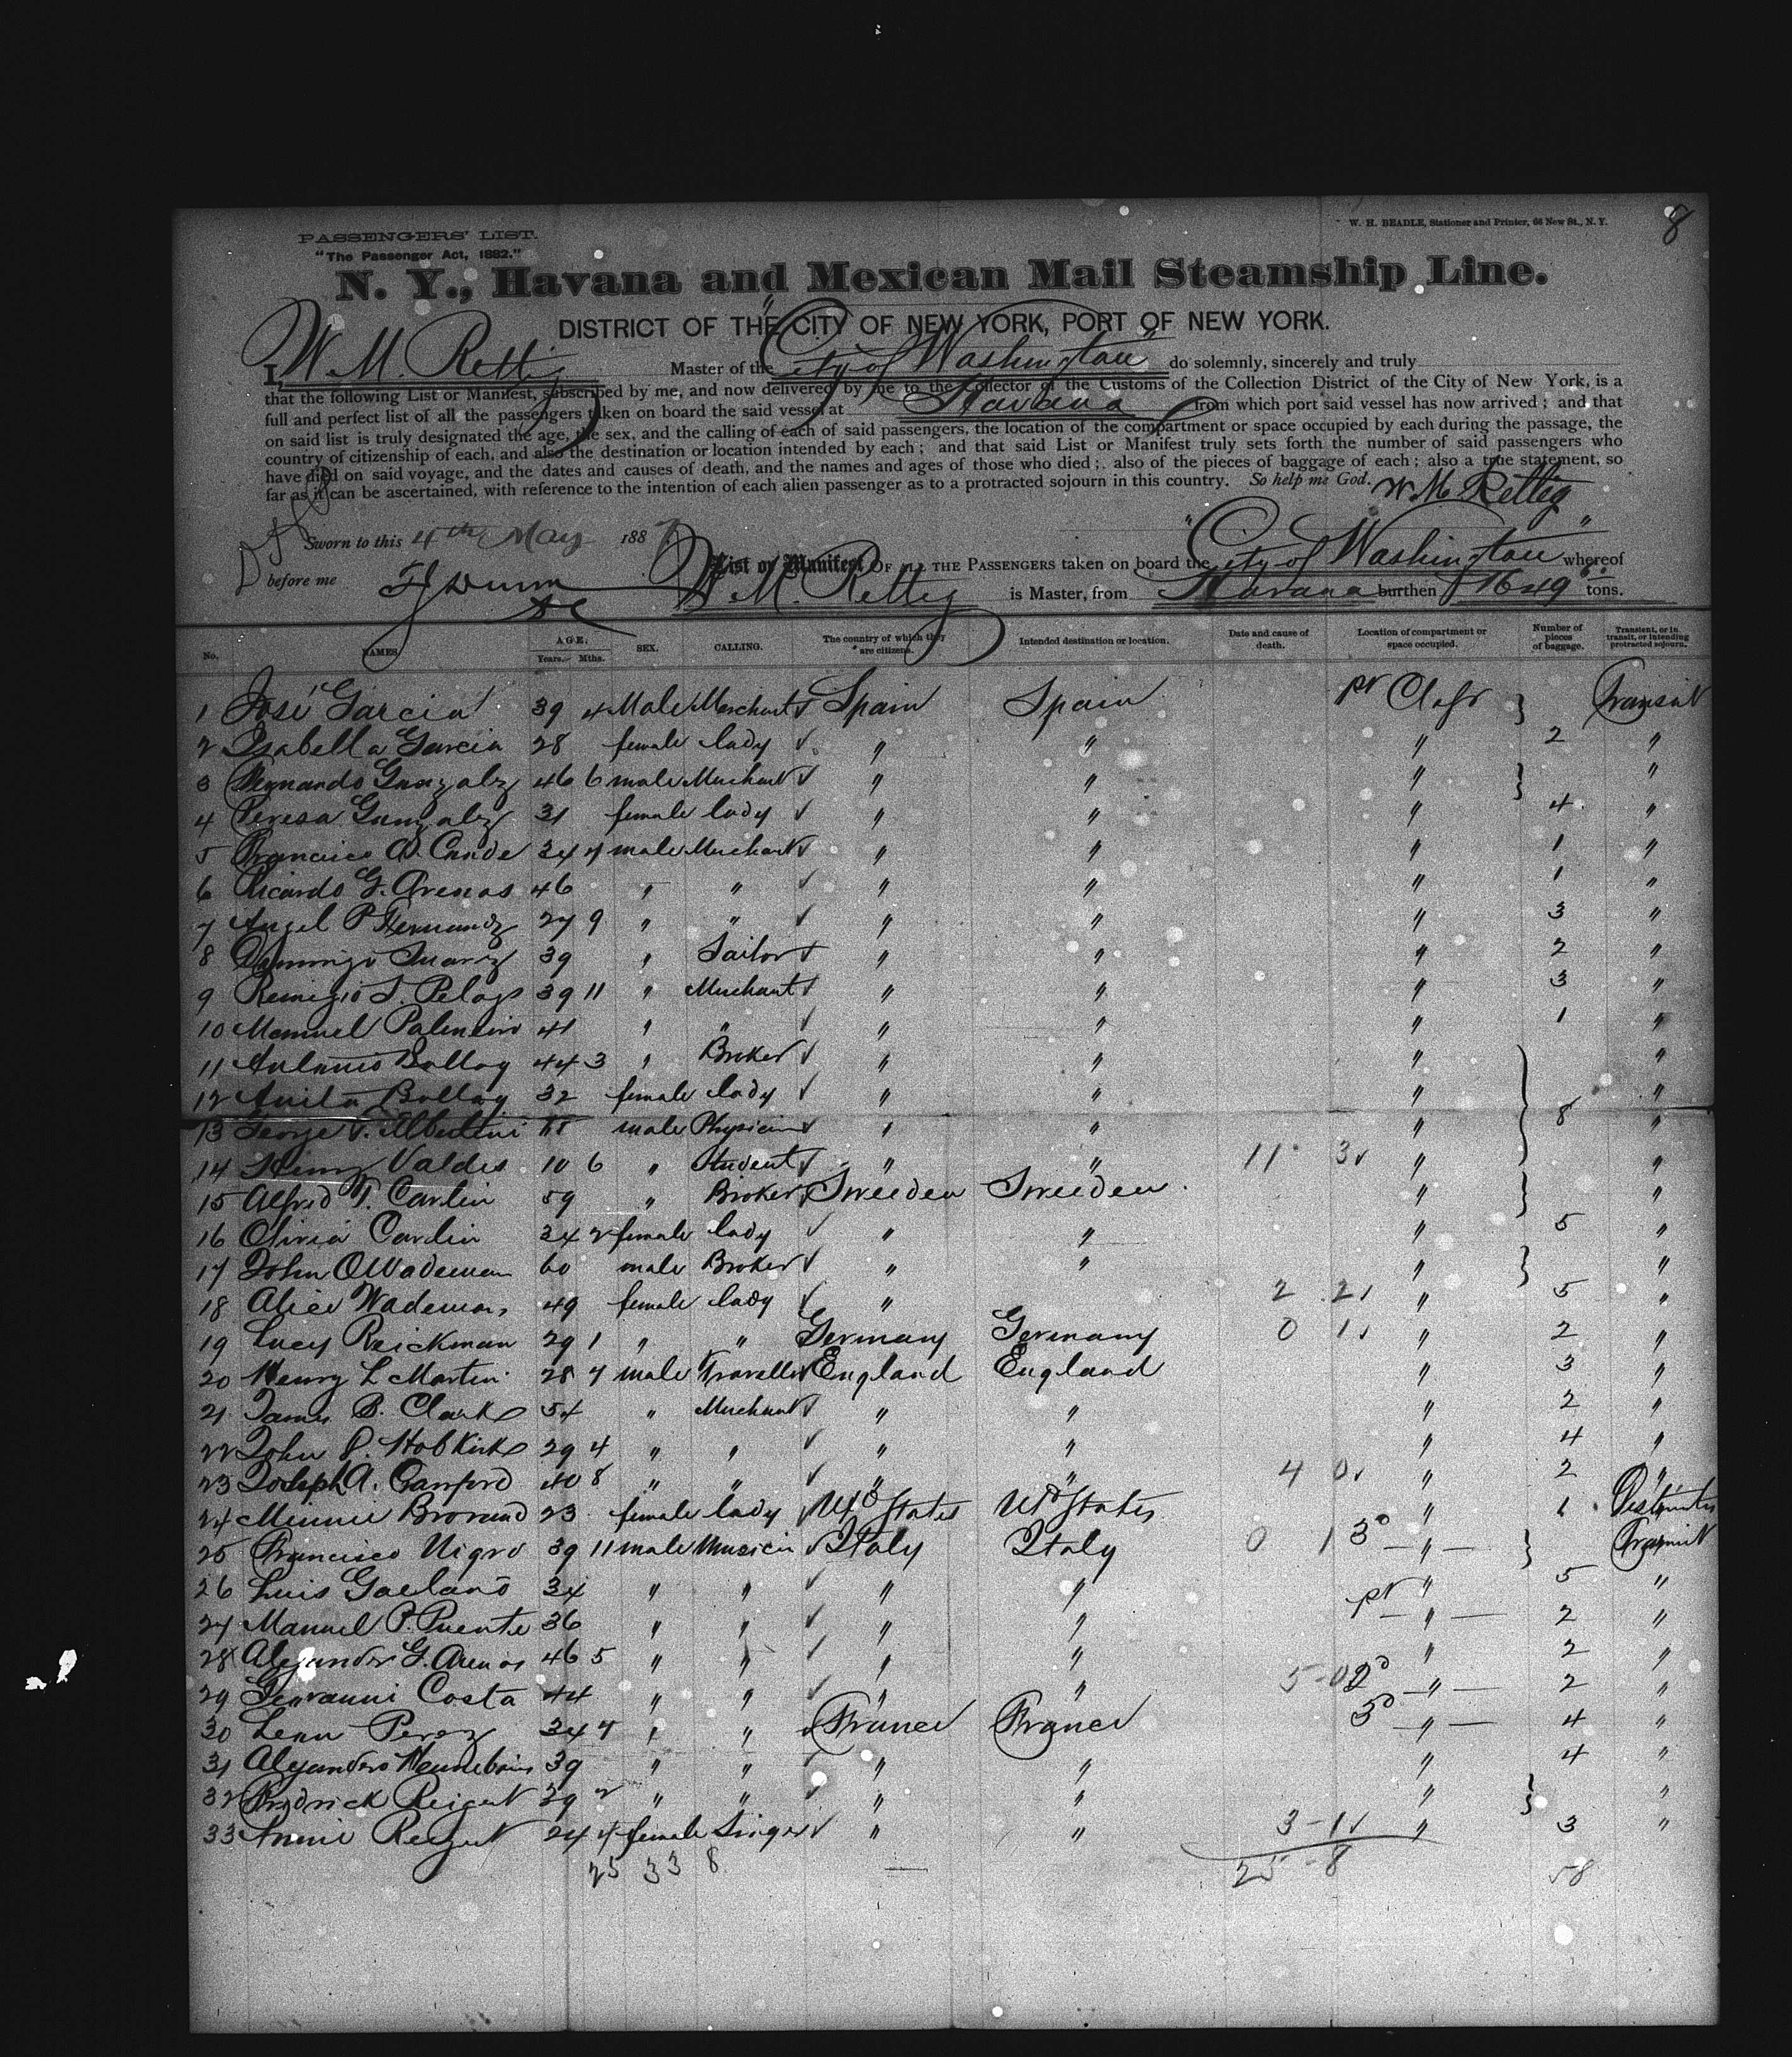 8
W. H. BEADLE, Stationer and Printer, 66 New St., N. Y.
PASSENGERS' LIST.
"The Passenger Act, 1882."
N. Y., Havana and Mexican Mail Steamship Line.
DISTRICT OF THE CITY OF NEW YORK, PORT OF NEW YORK.
I, W. M. Rettig Master of the "City of Washington" do solemnly, sincerely and truly
that the following List or Manifest, subscribed by me, and now delivered by me to the Collector of the Customs of the Collection District of the City of New York, is a
full and perfect list of all the passengers taken on board the said vessel at Havana from which port said vessel has now arrived; and that
on said list is truly designated the age, the sex, and the calling of each of said passengers, the location of the compartment or space occupied by each during the passage, the
country of citizenship of each, and also the destination or location intended by each; and that said List or Manifest truly sets forth the number of said passengers who
have died on said voyage, and the dates and causes of death, and the names and ages of those who died; also of the pieces of baggage of each; also a true statement, so
far as it can be ascertained, with reference to the intention of each alien passenger as to a protracted sojourn in this country. So help me God. W. M. Rettig
Sworn to this 4th May 1887
before me
List or Manifest OF ALL THE PASSENGERS taken on board the "City of Washington" whereof
W. M. Rettig is Master, from Havana burthen 1649 tons.
No. NAMES. AGE. Years. Mths. SEX. CALLING. The country of which they are citizens. Intended destination or location. Date and cause of death. Location of compartment or space occupied. Number of pieces of baggage. Transient, or in transit, or intending protracted sojourn.
1 José Garcia 39 4 Male Merchant Spain Spain Class } Transit
2 Isabella Garcia 28 female lady " " " 2 "
3 Gonzalez 46 6 male Merchant " " " } "
4 Teresa Gonzalez 31 female lady " " " 4 "
5 Francisco Conde 34 male Merchant " " " 1 "
6 Ricardo G. Arenas 46 " " " " " 1 "
7 Angel P. Fernandz 27 9 " " " " " 3 "
8 Domingo Suarez 39 " Sailor " " " 2 "
9 Remigio 39 11 " Merchant " " " 3 "
10 Manuel 41 " " " " " 1 "
11 Antonio 44 3 " Broker " " " } "
12 Anita 32 female lady " " " "
13 George male Physician " " " 8 "
14 Valdes 10 6 " Student " " 11 3 " "
15 Alfred T. Carlin 59 " Broker Sweeden Sweeden " } "
16 Olivia Carlin 34 2 female lady " " " 5 "
17 John O Wademan 60 male Broker " " " } "
18 Alice Wademan 49 female lady " 2 2 " 5 "
19 Lucy Reickman 29 1 " " Germany Germany 0 1 " 2 "
20 Henry L Martin 28 7 male Traveller England England " 3 "
21 James B. Clark 54 " Merchant " " " 2 "
22 John P. Hobkirk 29 4 " " " " " 4 "
23 Joseph A. 40 8 " " " " 4 0 " 2 "
24 Minnie 23 female lady Ud States Ud States " 1
25 Francisco Nigro 39 11 male Italy Italy 0 1 3d " } Transit
26 Luis Gaetano 34 " " " " " 5 "
27 Manuel P. Puente 36 " " " " " 2 "
28 Alejandro G. Arenas 46 5 " " " " " 2 "
29 Giovanni Costa 44 " " " " 5 0 2d " 2 "
30 Perez 34 7 " " France France 3d " 4 "
31 Alejandro 39 " " " " " 4 "
32 Fredrick 39 2 " " " " " } "
33 Annie 24 4 female Singer " " 3 - 1 " 3 "
25 33 8 25 - 8 58